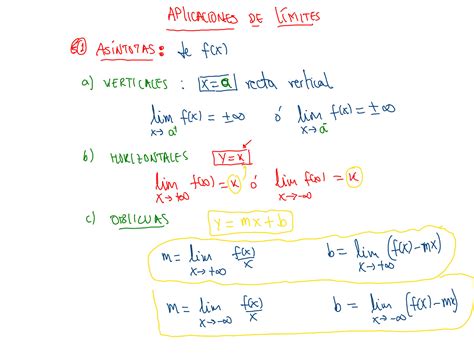 APLICACIONES DE LÍMITES
1 ASÍNTOTAS: de f(x)
a) VERTICALES : x=a recta vertical
lim x→a⁺ f(x) = ±∞ ó lim x→a⁻ f(x) = ±∞
b) HORIZONTALES y=k
lim x→+∞ f(x) = k ó lim x→-∞ f(x) = k
c) OBLICUAS y = mx + b
m = lim x→+∞ f(x)/x b = lim x→+∞ (f(x)-mx)
m = lim x→-∞ f(x)/x b = lim x→-∞ (f(x)-mx)